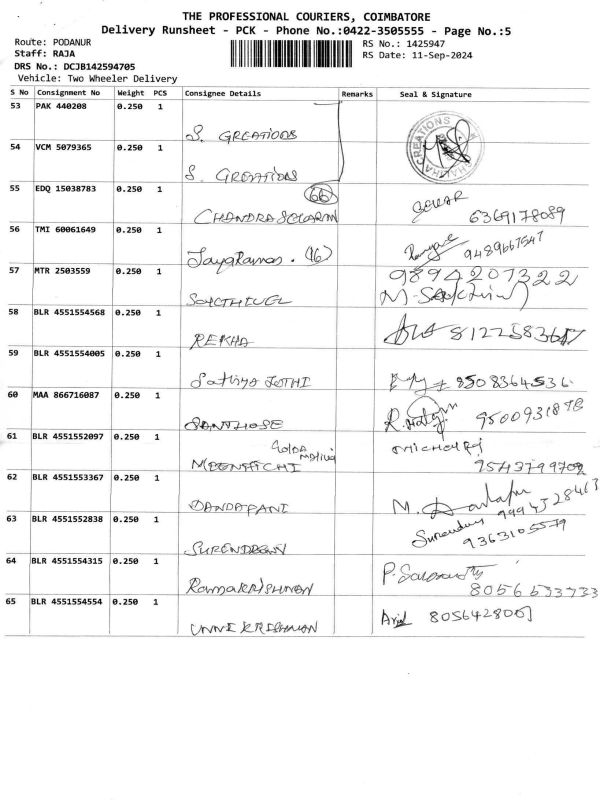 THE PROFESSIONAL COURIERS, COIMBATORE
Delivery Runsheet - PCK - Phone No.:0422-3505555 - Page No.:5
Route: PODANUR
RS No.: 1425947
Staff: RAJA
RS Date: 11-Sep-2024
DRS No.: DCJB142594705
Vehicle: Two Wheeler Delivery
S No Consignment No Weight PCS Consignee Details Remarks Seal & Signature
53 PAK 440208 0.250 1
S. CREATIONS
54 VCM 5079365 0.250 1
S. CREATIONS
55 EDQ 15038783 0.250 1
66
CHANDRASEKARAN 6369178089
56 TMI 60061649 0.250 1
Jayaraman. (16) 9489667547
57 MTR 2503559 0.250 1
9894207322
SAKTHIVEL
58 BLR 4551554568 0.250 1
REKHA
59 BLR 4551554005 0.250 1
Sathya JOTHI 8508364536
60 MAA 866716087 0.250 1
SANTHOSE
61 BLR 4551552097 0.250 1
MEENATCHI
62 BLR 4551553367 0.250 1
DANDAPANI M. 9994528463
63 BLR 4551552838 0.250 1
9363105579
64 BLR 4551554315 0.250 1
Ramakrishnan
65 BLR 4551554554 0.250 1
UNNI KRISHNAN